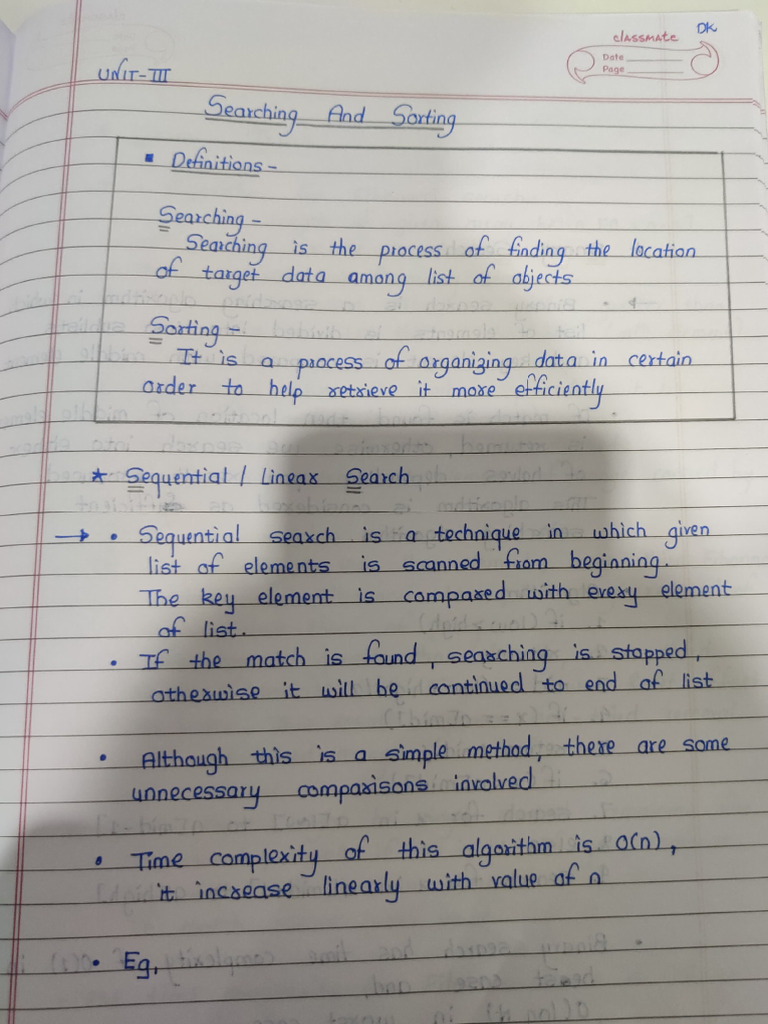 DK
classmate
Date
Page
UNIT-III
Searching And Sorting
▪ Definitions -
Searching -
Searching is the process of finding the location
of target data among list of objects
Sorting -
It is a process of organizing data in certain
order to help retrieve it more efficiently
* Sequential / Linear Search
→ • Sequential search is a technique in which given
list of elements is scanned from beginning.
The key element is compared with every element
of list.
• If the match is found, searching is stopped,
otherwise it will be continued to end of list
• Although this is a simple method, there are some
unnecessary comparisons involved
• Time complexity of this algorithm is O(n),
it increase linearly with value of n
• Eg,